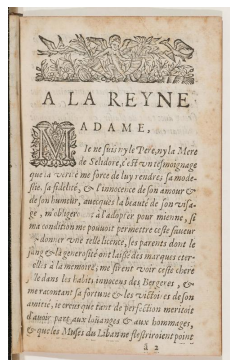 A LA REYNE
MADAME,
Ie ne suis ny le Pere, ny la Mere
de Selidore, c'est vn tesmoignage
que la verité me force de luy rendre: sa mode-
stie, sa fidelité, & l'innocence de son amour &
de son humeur, auecques la beauté de son visa-
ge, m'obligero à l'adopter pour mienne, si
ma condition me pouuoit permettre ceste faueur
donner vne telle licence, les parents dont le
sang & la generosité ont laissé des marques eter-
à la memoire, me firent voir ceste chere
dans les habits innocens des Bergeres, &
me racontant sa fortune & les victoires de son
amitié, ie creus que tant de perfection meritoit
d'auoir part aux loüanges & aux hommages,
& que les Muses du Liban ne flestriroient point
á 2